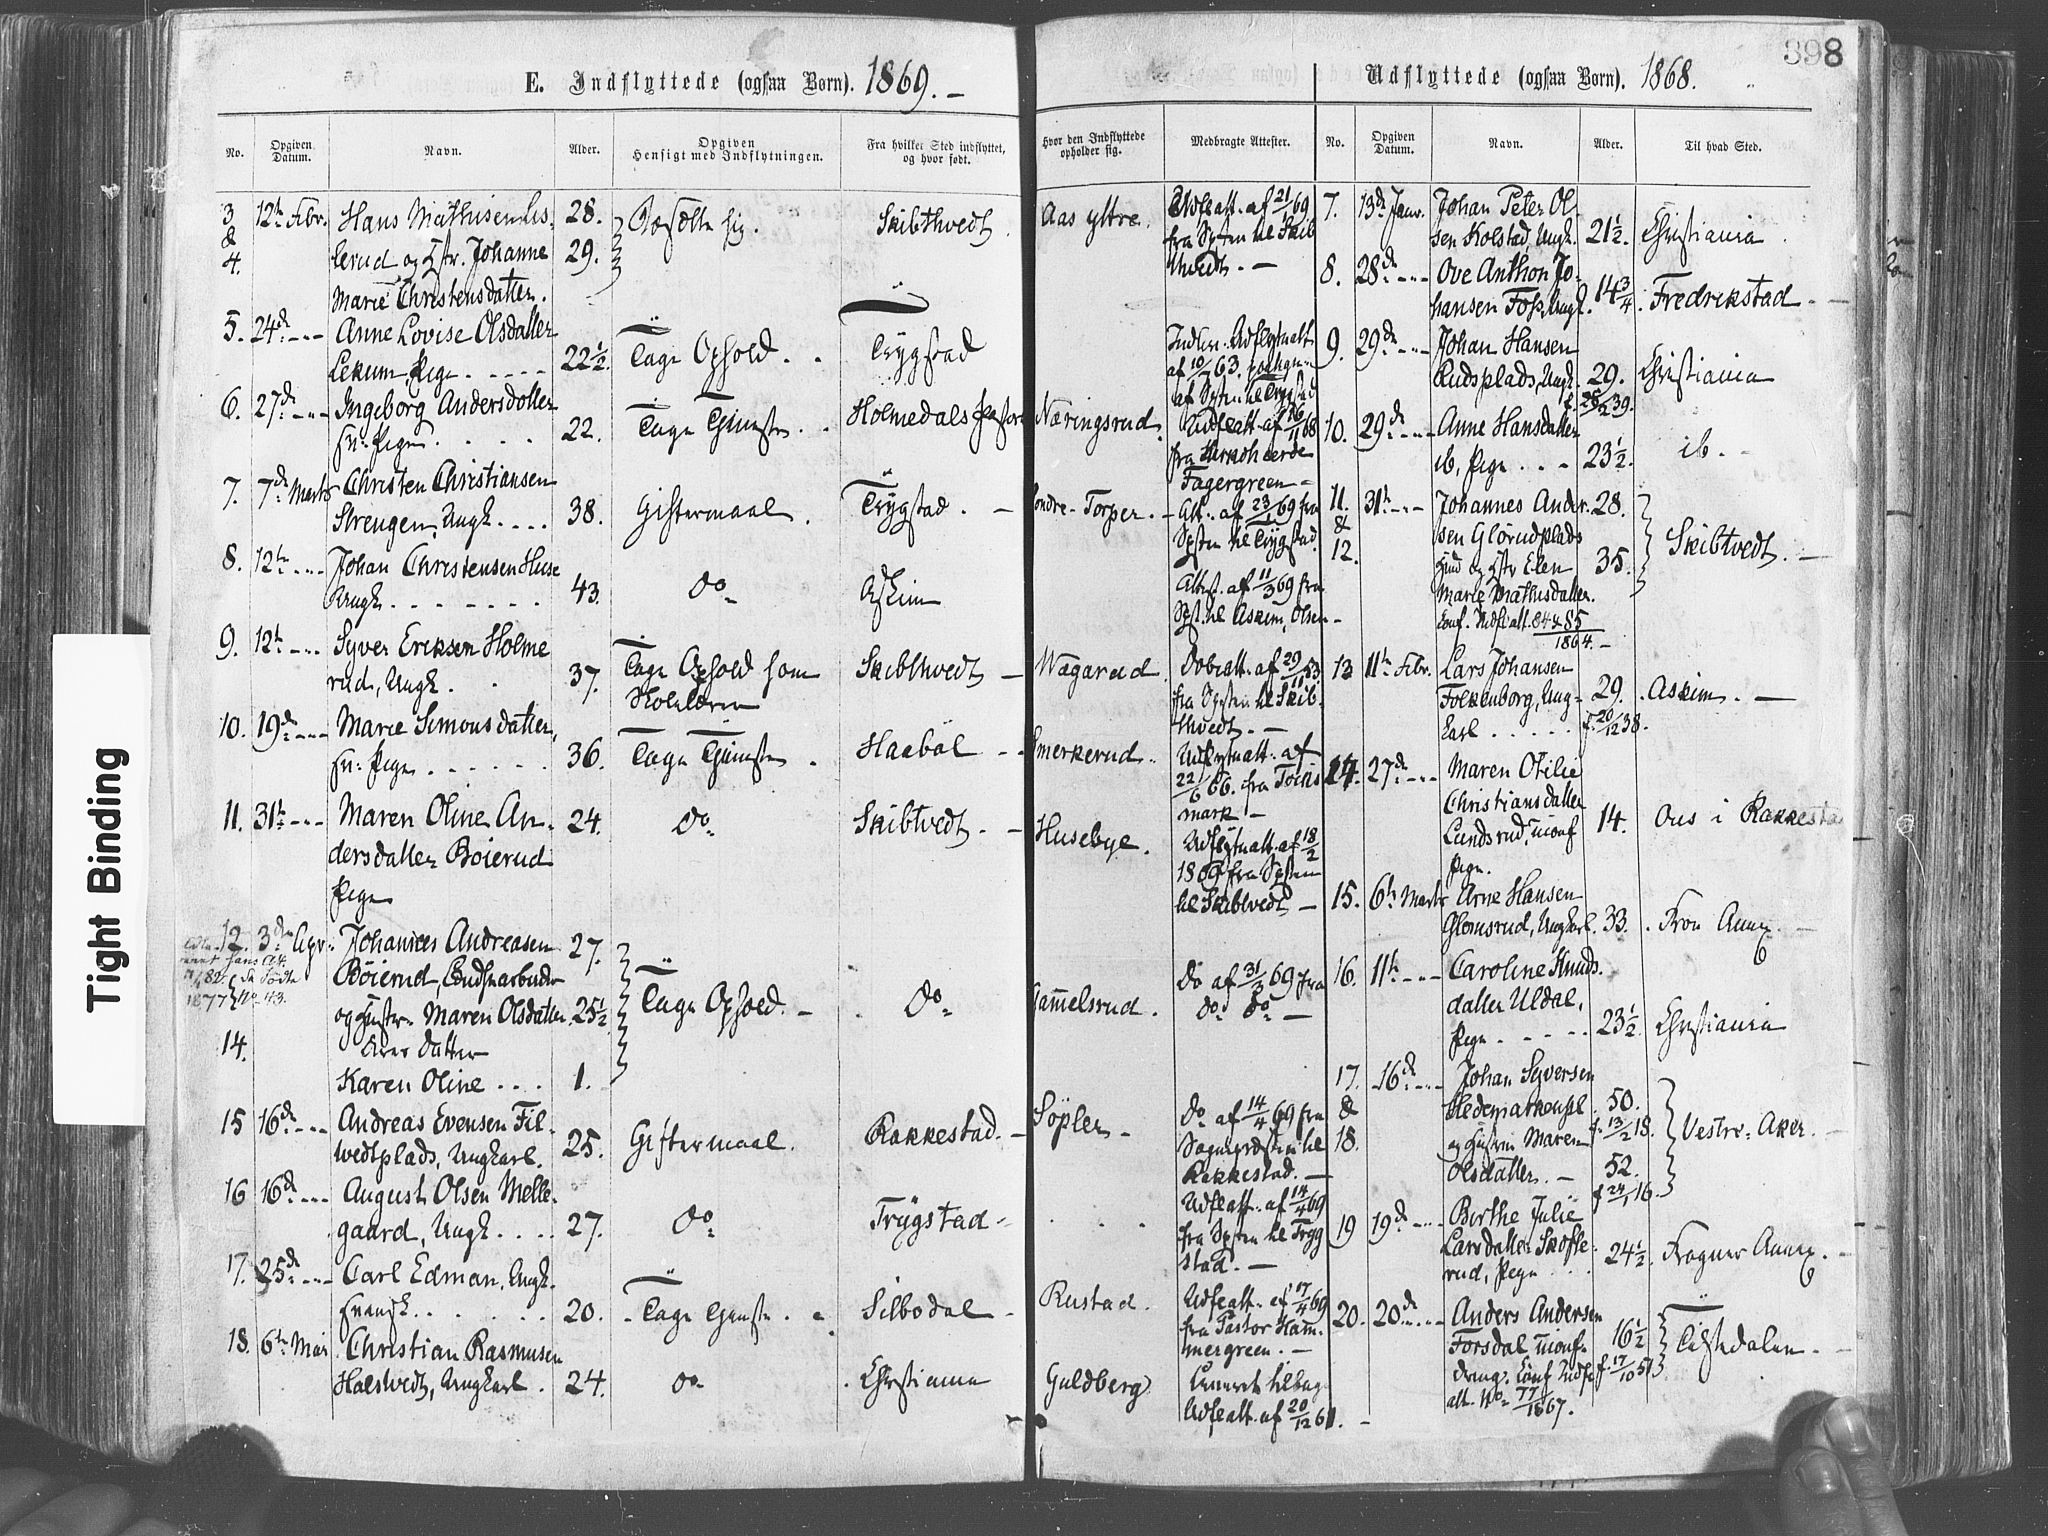 398
E. Indflyttede (ogsaa Børn). 1869.
No. Opgiven Datum. Navn. Alder. Opgiven Hensigt med Indflytningen. Fra hvilket Sted indflyttet, og hvor født. Hvor den Indflyttede opholder sig. Medbragte Attester.
3 & 4. 12te Febr. Hans Mathisen
og Hstr. Johanne
Marie Christensdatter.
28.
29.
Bosætte sig.
Skibthvedt
Aas yttre.
Udfl.att. af 21/1 69
fra Spsten til Skib
thvedt.
5. 24de Anne Lovise Olsdatter
Lekum, Pige
22½.
Tage Ophold.
Trygstad
6. 27de Ingeborg Andersdatter
Pige
22.
Tage Tjeneste
Holmedals
Næringsrud.
Fagergreen
7. 7de Marts Christen Christiansen
Strengen, Ungk.
38.
Giftermaal.
Trygstad.
Søndre-Torper.
Att. af 23/1 69 fra
Spsten til Trygstad.
8. 12te Johan Christensen Huse
Ungk.
43.
Do
Askim
Attest. af 11/3 69 fra
Spst. til Askim, Olsen
9. 12te Syver Eriksen Holme
rud, Ungk.
37.
Tage Ophold som
Skibthvedt
Wagarud.
Dobeatt. af 29/11 53
fra Spsten til Skib
thvedt.
10. 19de Marie Simonsdatter,
Pige
36.
Tage Tjeneste
Haabøl
Smerkerud.
Udflytn.att. af
22/6 66. fra Tocks
mark.
11. 31te Maren Oline An-
dersdatter Boierud
Pige
24.
Do
Skibtvedt.
Husebye.
Udflytn.att. af 18/2
1869 fra Spsten
til Skibtvedt
12. 3die Apr. Johannes Andreasen
Böierud,
og Hustr. Maren Olsdatter
14. Datter
Karen Oline
27.
25½
1.
Tage Ophold.
Do
Gammelsrud.
Do af 31/3 69 fra
Do Do
15 16de Andreas Evensen Fil-
wedtplads, Ungkarl.
25.
Giftermaal.
Rakkestad.
Söpler
Do af 14/4 69 fra
Sognepræsten til
Rakkestad.
16 16de August Olsen Melle-
gaard, Ungk.
27.
Do
Trygstad
Udfl.att. af 14/4 69
fra Spsten til Trygg
stad.
17. 25de Carl Edman, Ungk.
20.
Tage Tjeneste
Silbodal
Rustad.
Udfl.att. af 17/4 69
fra Pastor Ham-
mergreen.
18. 6te Mai Christian Rasmusen
Halstvedt, Ungkarl.
24.
Do
Christiania
Guldberg
Udfl.att. af 20/12 61.
Udflyttede (ogsaa Børn). 1868.
No. Opgiven Datum. Navn. Alder. Til hvad Sted.
7. 13de Janr. Johan Peter Ol-
sen Kolstad, Ungk.
21½.
Christiania
8. 28de Ove Anthon Jo-
hansen Foss, Ungk.
14¾
Fredrikstad
9. 29de Johan Hansen
Rudsplads, Ungk.
29.
f. 28/2 39.
Christiania
10. 29de Anne Hansdatter
ib, Pige
23½.
ib.
11. & 12. 31te Johannes Ander-
sen Glorudplads
Hmd og Hstr Elen
Marie Mathisdatter.
Conf. Indfl.att. 84 & 85
1864.
28.
35.
Skibtvedt.
13 11te Febr. Lars Johansen
Folkenborg, Ung-
karl
29.
f. 20/12 38.
Askim.
14. 27de Maren Otilie
Christiansdatter
Lundsrud,
Pige.
14.
Ous i Rakkestad
15. 6te Marts Arne Hansen
Glomsrud, Ungkarl.
33.
Fron Annx.
16. 11te Caroline Knuds-
datter Uldal,
Pige
23½
Christiania
17. & 18. 16de Johan Syversen
Hedemarkenspl.
og Hustru Maren
Olsdatter.
50.
f. 13/2 18.
52.
f 24/1 16.
Vestre-Aker.
19 19de Birthe Julie
Larsdatter
rud, Pige
24½
Frogner Annx.
20. 20de Anders Andersen
Forsdal,
dreng. Conf. Indfl
att. No 77/1867.
16½
f. 17/10 51
Tistedalen
Tight Binding